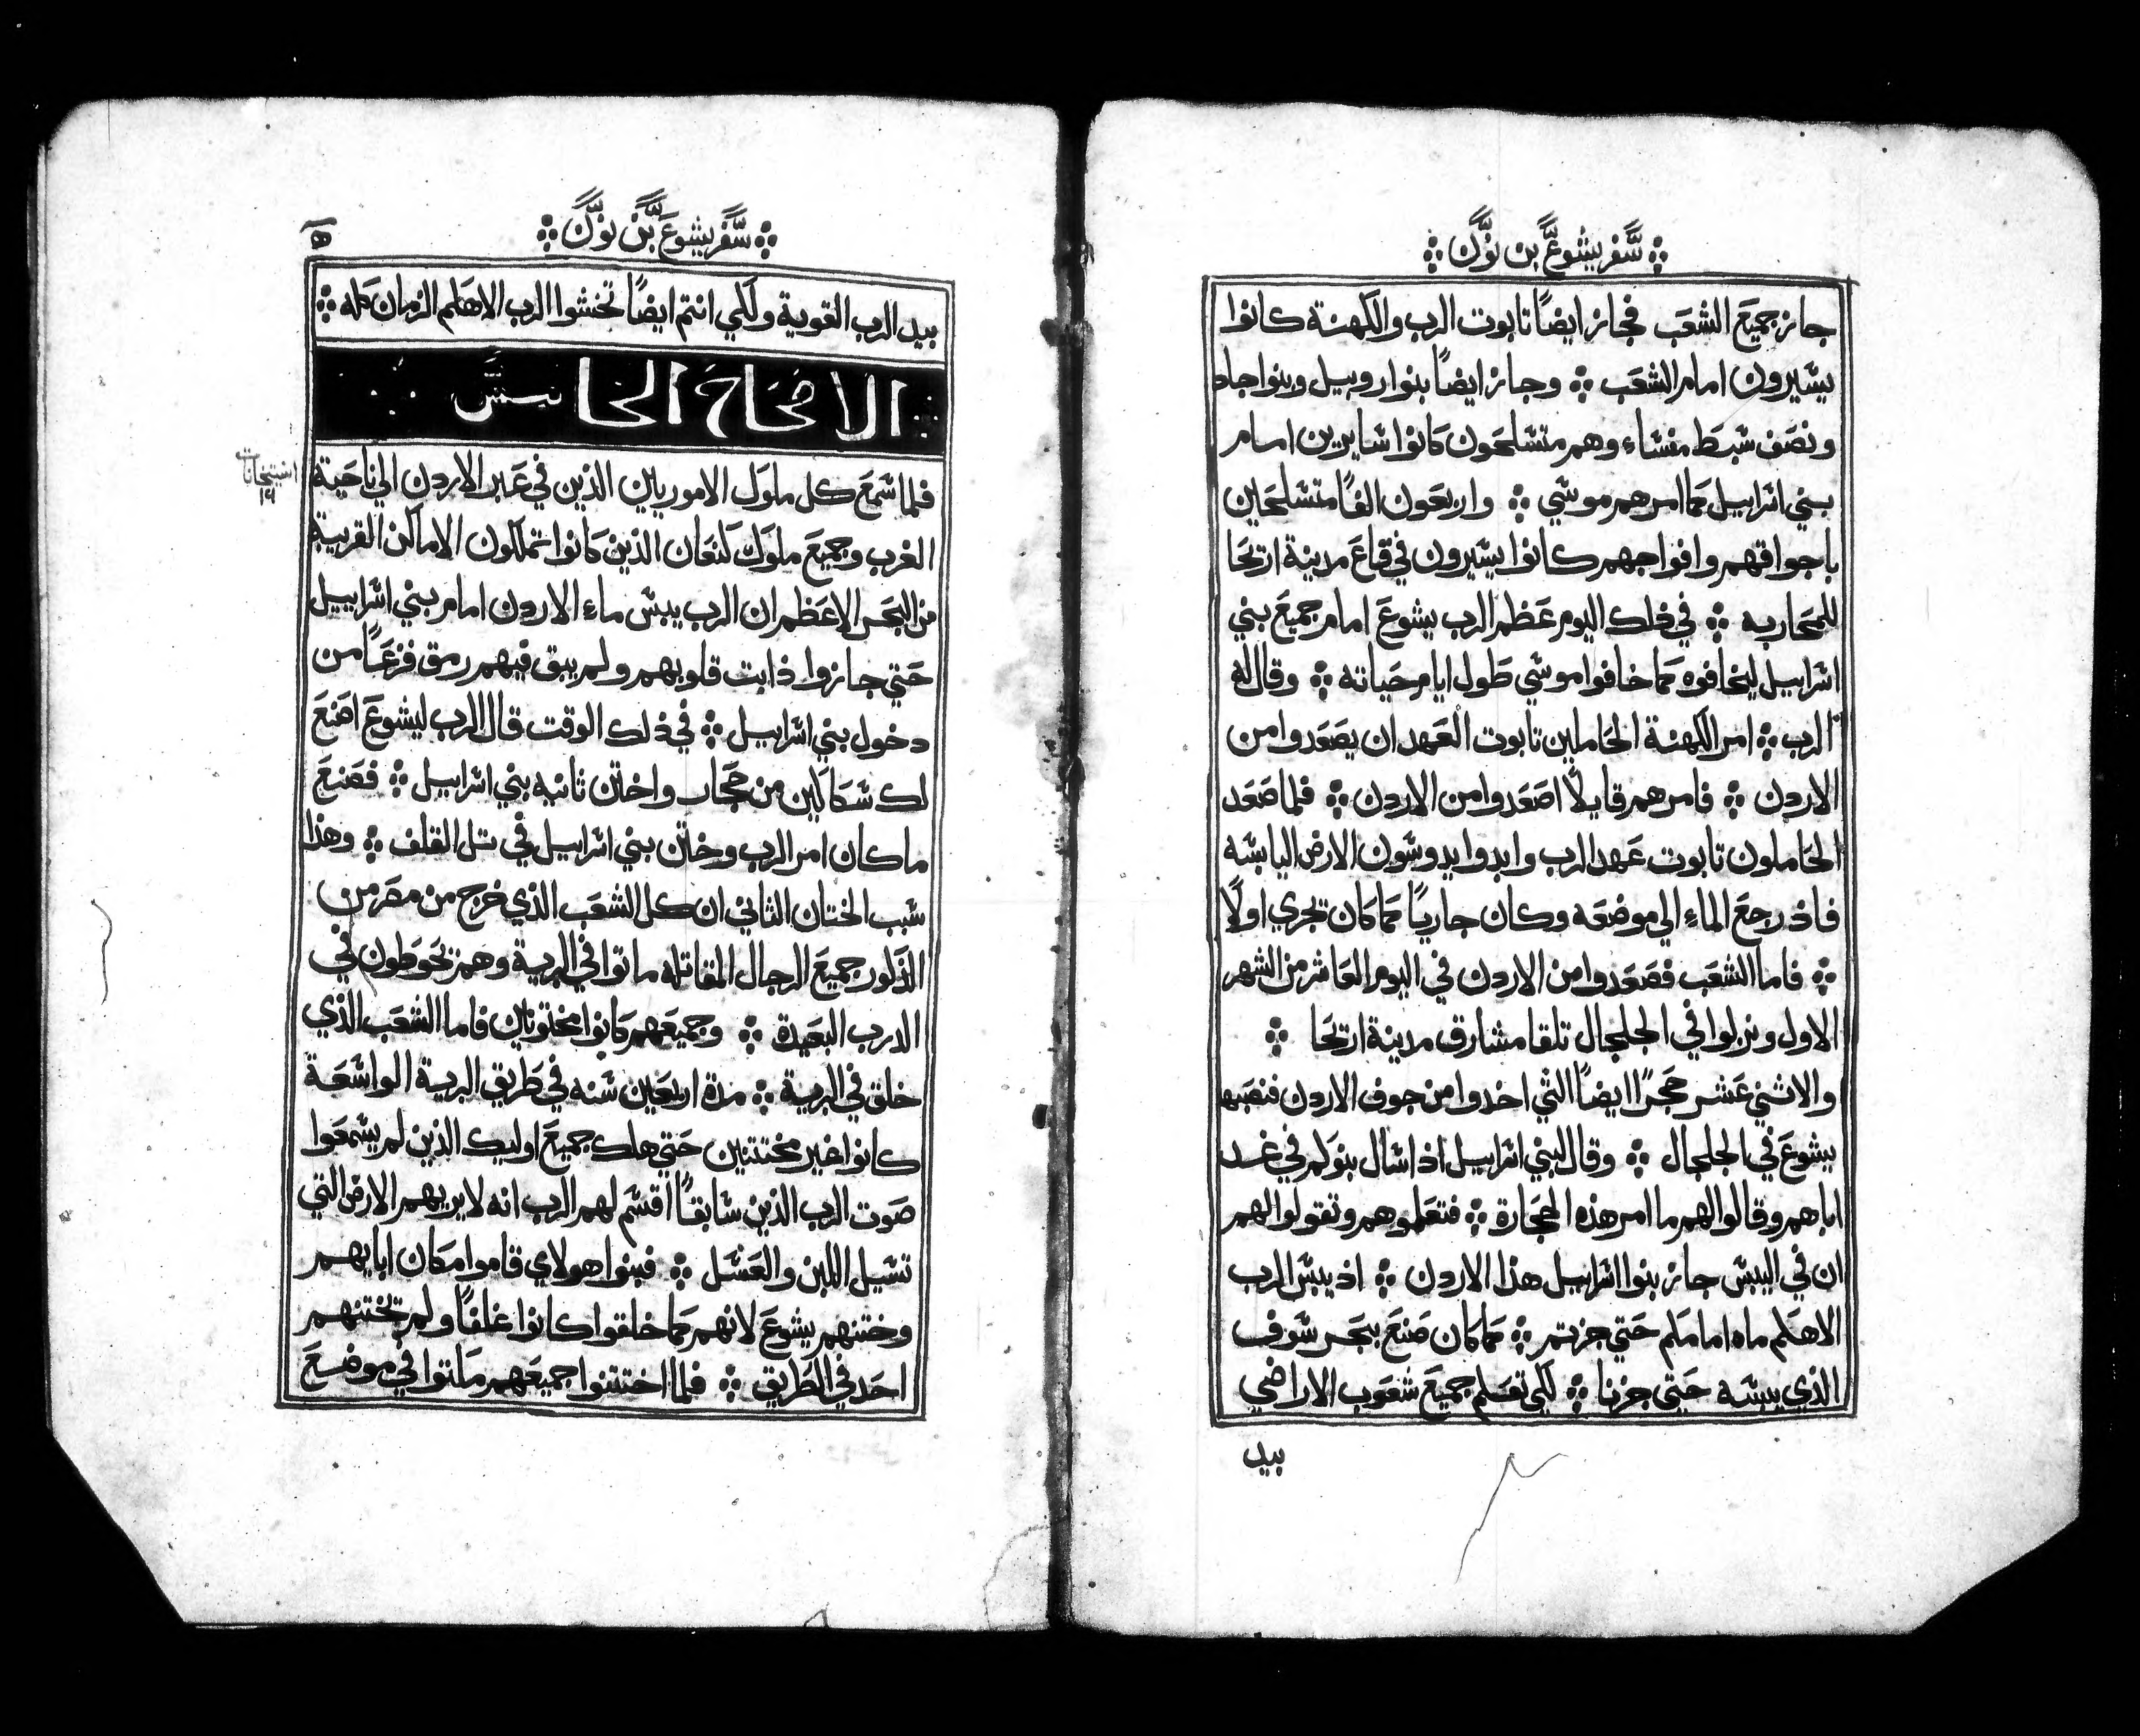 سفر يشوع بن نون
جاز جميع الشعب فجاز ايضاً تابوت الرب والكهنة كانوا
يسيرون امام الشعب وجاز ايضاً بنوا روبيل وبنوا جاد
ونصف سبط منساء وهم متسلحون كانوا سايرين امام
بني اسراييل كما امرهم موسي واربعون الفاً متسلحين
باجواقهم وافواجهم كانوا يسيرون في قاع مدينة اريحا
للمحاربه في ذلك اليوم عظم الرب يشوع امام جميع بني
اسراييل ليخافوه كما خافوا موسي طول ايام حياته وقال له
الرب امر الكهنة الحاملين تابوت العهد ان يصعدوا من
الاردن فامرهم قايلاً اصعدوا من الاردن فلما صعد
الحاملون تابوت عهد الرب وابدوا يدوسون الارض اليابسه
فاذ رجع الماء الي موضعه وكان جارياً كما كان تجري اولاً
فاما الشعب فصعدوا من الاردن في اليوم العاشر من الشهر
الاول ونزلوا في الجلجال تلقا مشارق مدينة اريحا
والاثني عشر حجراً ايضاً التي اخدوا من جوف الاردن فنصبها
يشوع في الجلجال وقال لبني اسراييل اذا سال بنوكم في غد
اباهم وقالوا لهم ما امر هذه الحجارة فتعلموهم وتقولوا لهم
ان في اليبس جاز بنوا اسراييل هذا الاردن اذ يبس الرب
الاهكم ماه امامكم حتي جزتم كما كان صنع ببحر سوف
الذي يبسه حتي جزنا لكي تعلم جميع شعوب الاراضي
بيد
سفر يشوع بن نون
٥
بيد الرب القوية ولكي انتم ايضاً تخشوا الرب الاهكم الزمان كله
الاصحاح الخامس
فلما سمع كل ملوك الاموريين الذين في عبر الاردن الي ناحية
الغرب وجميع ملوك كنعان الذين كانوا تملكون الاماكن القريبة
من البحر الاعظم ان الرب يبس ماء الاردن امام بني اسراييل
حتي جازوا ذابت قلوبهم ولم يبق فيهم رمق فزعاً من
دخول بني اسراييل في ذلك الوقت قال الرب ليشوع اصنع
لك سكاكين من حجار واختن ثانيه بني اسراييل فصنع
ما كان امر الرب وختن بني اسراييل في تل القلف وهذا
سبب الختان الثاني ان كل الشعب الذي خرج من مصر من
الذكور جميع الرجال المقاتله ماتوا في البرية وهم تحوطون في
الدرب البعيدة وجميعهم كانوا مختونين فاما الشعب الذي
خلق في البرية مدة اربعين سنه في طريق البرية الواسعة
كانوا غير مختتنين حتي هلك جميع اوليك الذين لم يسمعوا
صوت الرب الذين سابقاً اقسم لهم الرب انه لا يريهم الارض التي
تسيل اللبن والعسل فبنوا هولاي قاموا مكان ابايهم
وختنهم يشوع لانهم كما خلقوا كانوا غلفاً ولم تختنهم
احد في الطريق فلما اختتنوا جميعهم مكثوا في موضع